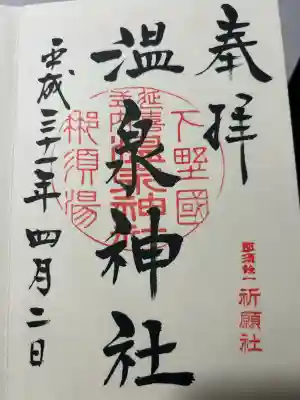 奉拝
那須餘一
祈願社
下野國
延喜
式内
温泉神社
温泉神社
那須湯
平成三十一年四月二日